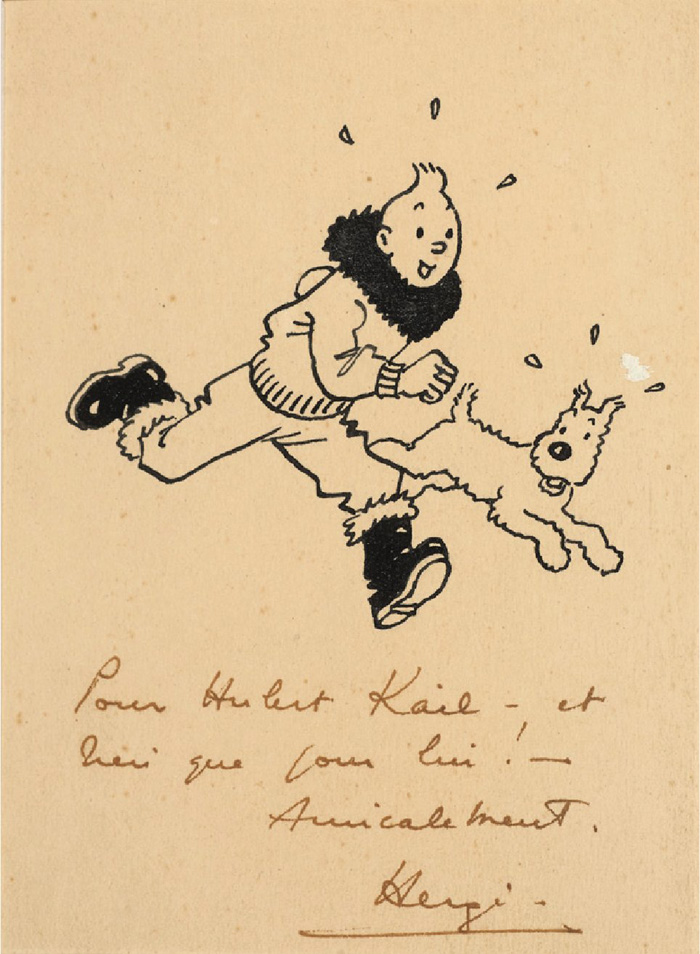 Pour Hubert Kail - et
rien que pour lui ! —
Amicalement.
Hergé -